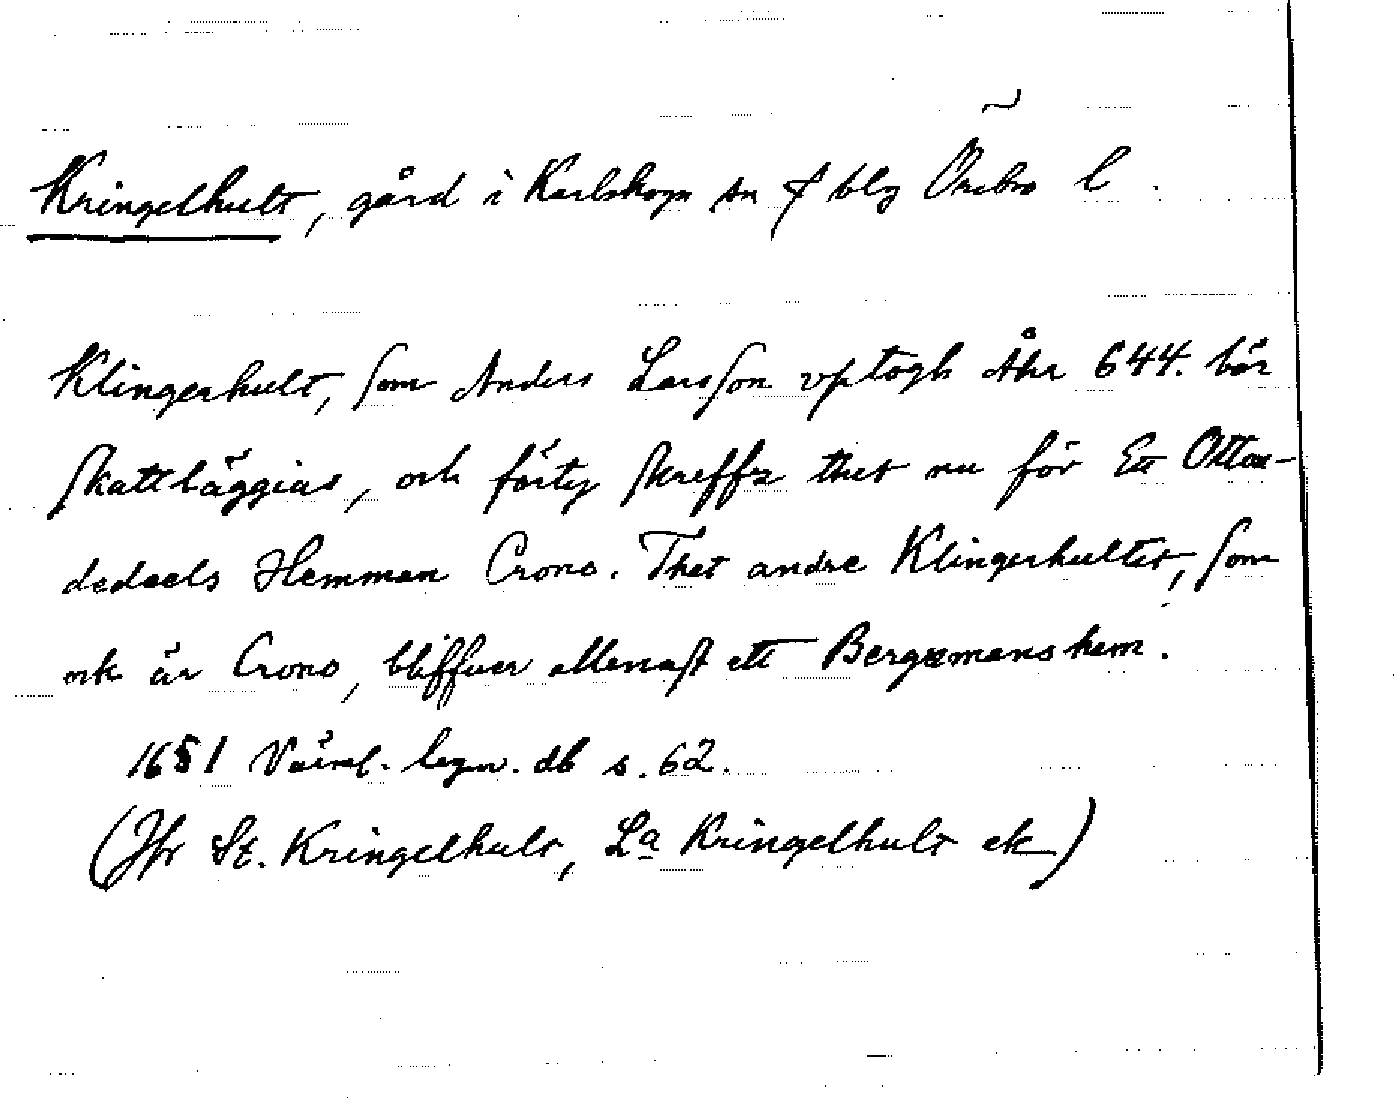 Kringelhult, gård i Karlskoga sn f blg Örebro l.
Klingerhult, som Anders Larsson vptogh Åhr 644. bör
skattläggias, och förty skreffz thet nu för Ett Otton-
dedeels Hemman Crono. Thet andre Klingerhultet, som
ock är Crono, bliffuer allenast ett Bergzmans hem.
1651 Värml. legn. db s. 62.
(Jfr St. Kringelhult, La Kringelhult ek)